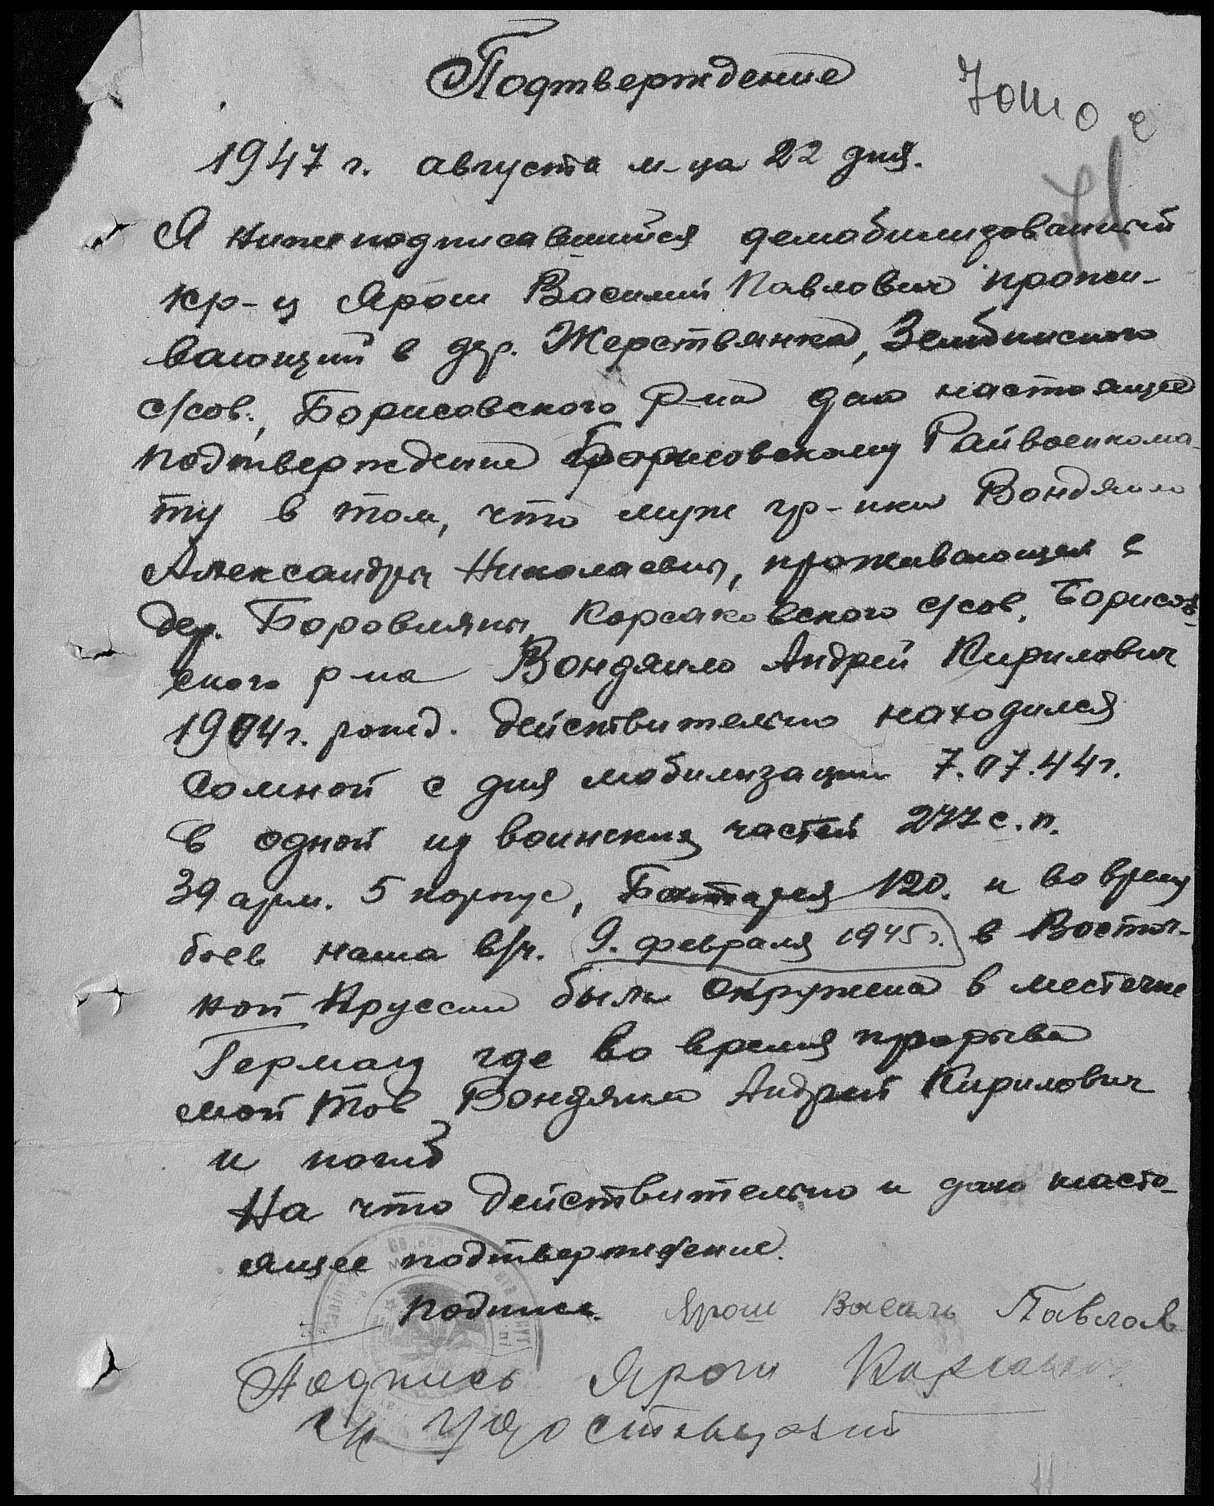 Подтверждение
1947 г. августа м-ца 22 дня.
Я нижеподписавшийся демобилизованный
кр-ц Ярош Василий Павлович прожи-
вающий в дер. Жерствянка, Зембинского
с/сов., Борисовского р-на даю настоящее
подтверждение Борисовскому Райвоенкома-
ту в том, что муж гр-нки Вондяило
Александры Николаевны, проживающая в
дер. Боровляны Корсаковского с/сов. Борисов-
ского р-на Вондяило Андрей Кирилович
1904г. рожд. действительно находился
сомной с дня мобилизации 7.07.44г.
в одной из воинских частей 277 с.п.
39 арм. 5 корпус, Баттарея 120. и во время
боев наша в/ч. 9. февраля 1945г. в Восточ-
ной Пруссии была окружена в местечке
Гермац где во время прорыва
мой тов Вондяило Андрей Кирилович
и погиб
На что действительно и даю насто-
ящее подтверждение.
подпись Ярош Василь Павлов
Подпись Ярош
с/с